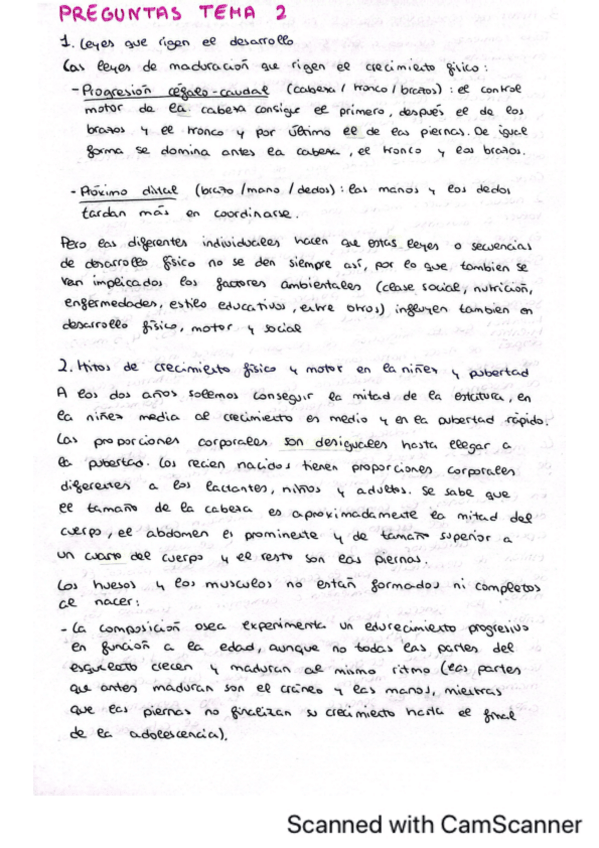 PREGUNTAS TEMA 2
1. Leyes que rigen el desarrollo
Las leyes de maduración que rigen el crecimiento físico:
- Progresión céfalo-caudal (cabeza / tronco / brazos): el control
motor de la cabeza consigue el primero, después el de los
brazos y el tronco y por último el de las piernas. De igual
forma se domina antes la cabeza, el tronco y los brazos.
- Próximo distal (brazo /mano /dedos): las manos y los dedos
tardan más en coordinarse.
Pero las diferentes individuales hacen que estas leyes o secuencias
de desarrollo físico no se den siempre así, por lo que tambien se
ven implicados los factores ambientales (clase social, nutrición,
enfermedades, estilo educativos, entre otros) influyen tambien en
desarrollo físico, motor y social
2. Hitos de crecimiento físico y motor en la niñez y pubertad
A los dos años solemos conseguir la mitad de la estatura, en
la niñez media el crecimiento es medio y en la pubertad rápido.
Las proporciones corporales son desiguales hasta llegar a
la pubertad. Los recien nacidos tienen proporciones corporales
diferentes a los lactantes, niños y adultos. Se sabe que
el tamaño de la cabeza es aproximadamente la mitad del
cuerpo, el abdomen es prominente y de tamaño superior a
un cuarto del cuerpo y el resto son las piernas.
Los huesos y los musculos no están formados ni completos
al nacer:
- La composición osea experimenta un edurecimiento progresivo
en función a la edad, aunque no todas las partes del
esqueleto crecen y maduran al mismo ritmo (las partes
que antes maduran son el cráneo y las manos, mientras
que las piernas no finalizan su crecimiento hasta el final
de la adolescencia).
Scanned with CamScanner